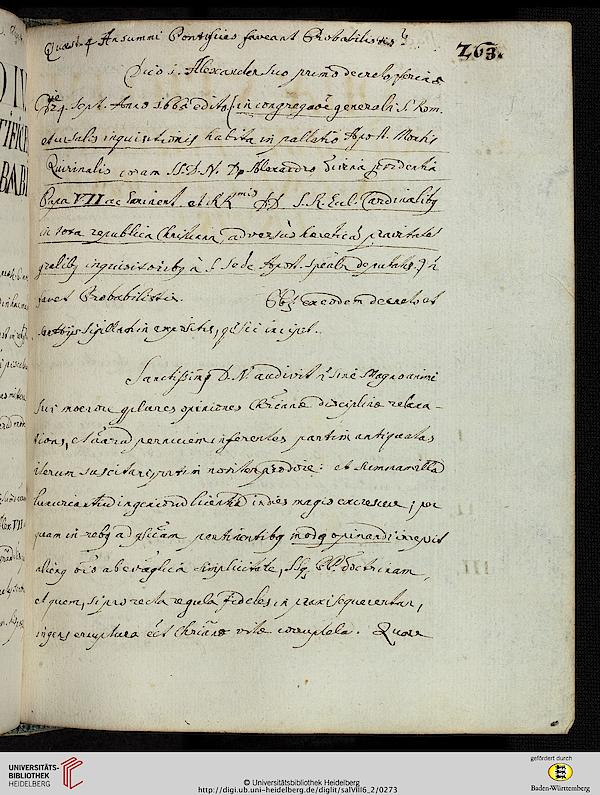 Quaest. 4 An summi Pontifices faveant Probabilistis?
263.
Dico 1. Alexander suo primo decreto feria
24 sept. Anno 1665 edito (in congregaoe generali S. Rom.
et universalis inquisitionis habita in pallatio Apost. Montis
Quirinalis coram SS. D. N. D. Alexandro divina providentia
Papa VII ac Eminent. et RR mis DD. S. R. Eccl. Cardinalibq
in tota republica Christiana adversus haeretica pravitatem
gnalibq inquisitoribq à S. Sede Apost. specialr deputatis.) n
favet Probabilistis. Pbr. ex eodem decreto et
sigillatim expositis, qd sic incipit.
Sanctissimq D. N. audivit n sine Magno animi
sui moerore qplures opiniones Chrianae disciplinae relaxa-
tivas, et aiarum perniciem inferentes partim antiquatas
iterum suscitari, partim noviter prodire: et summam illa
luxuriantium ingeniorum licentia indies magis excrescere; per
quam in rebq ad pertinentibq modq opinandi irrepsit
alienq oio ab evaglica simplicitate, SSq. PP. doctrinam,
et quem, si pro recta regula fideles in praxi sequerentur,
ingens eruptura eet Chrianae vitae corruptela. Quare
UNIVERSITÄTS-
BIBLIOTHEK
HEIDELBERG
© Universitätsbibliothek Heidelberg
http://digi.ub.uni-heidelberg.de/diglit/salVIII6_2/0273
gefördert durch
Baden-Württemberg